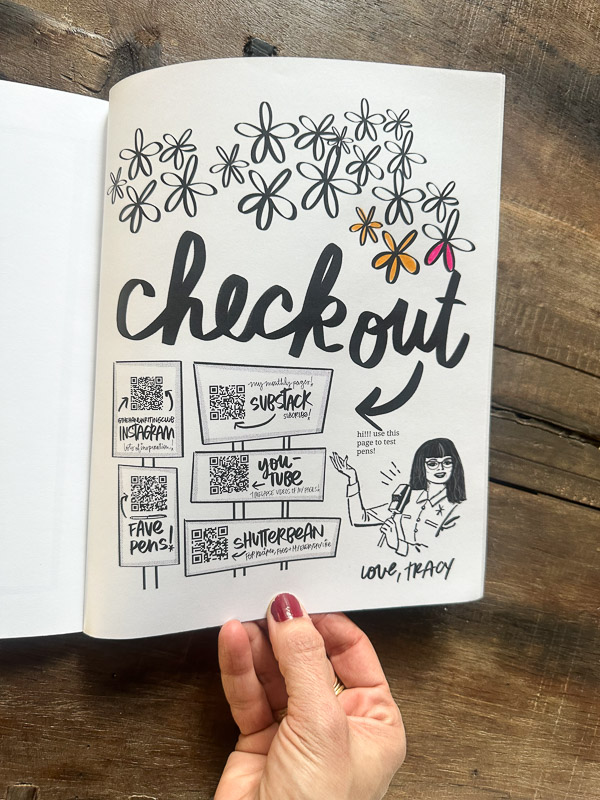 checkout
my monthly pages!
SUBSTACK
SUBSCRIBE!
@THEHANDWRITINGCLUB
INSTAGRAM
lots of inspiration!
YOU-
TUBE
TIMELAPSE VIDEOS OF MY PAGES!
FAVE
PENS!
SHUTTERBEAN
FOR RECIPES, PREP + MY EVERYDAY LIFE
hi!!! use this
page to test
pens!
LOVE, TRACY